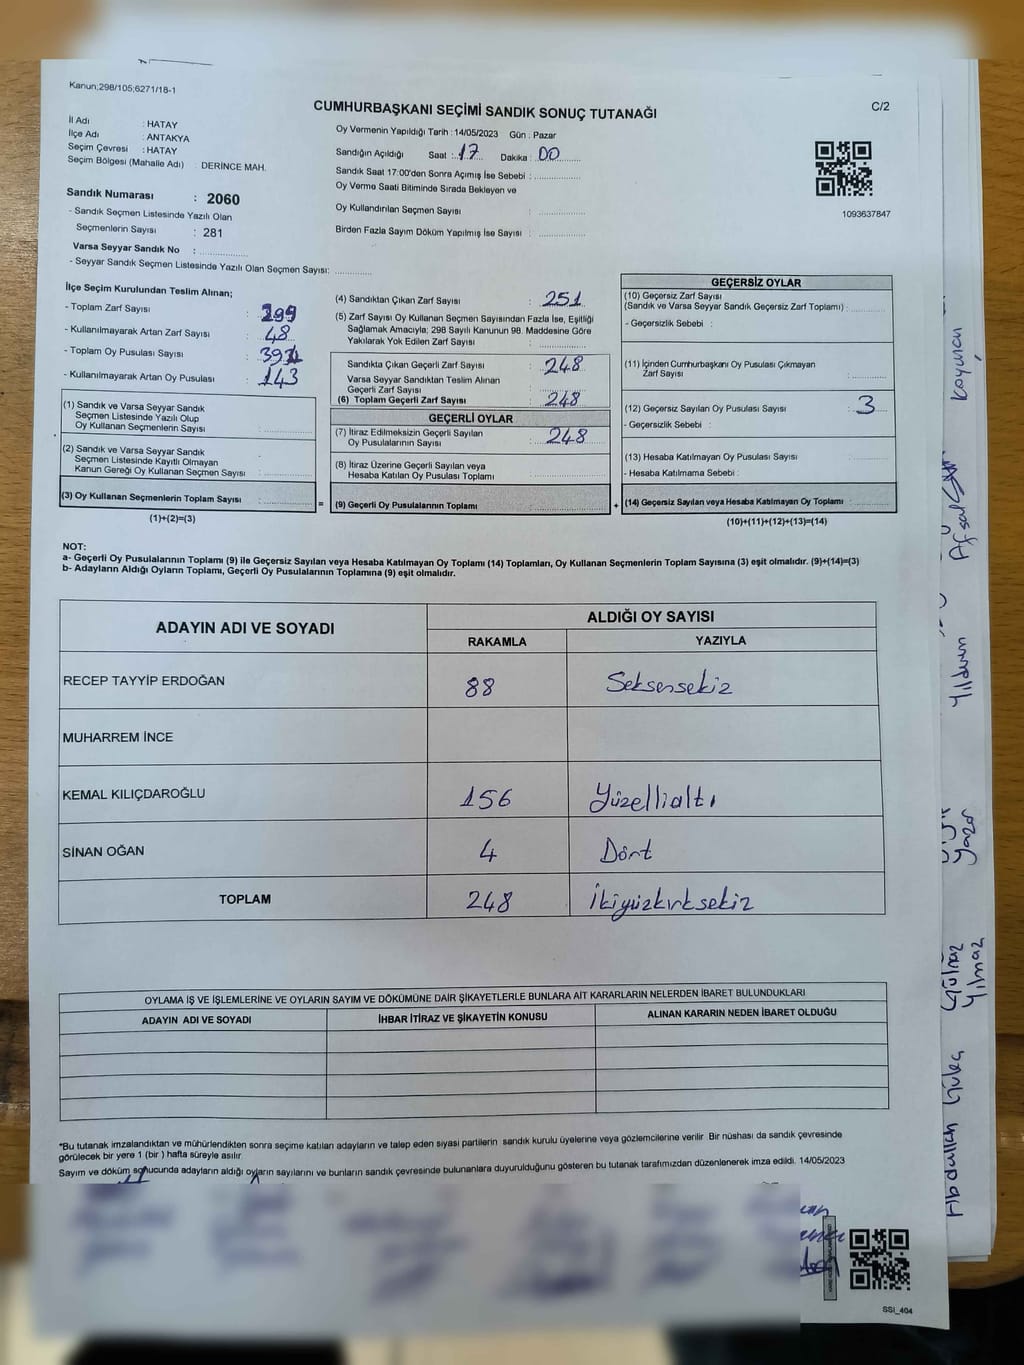 Kanun;298/105;6271/18-1
CUMHURBAŞKANI SEÇİMİ SANDIK SONUÇ TUTANAĞI
C/2
İl Adı : HATAY
İlçe Adı : ANTAKYA
Seçim Çevresi : HATAY
Seçim Bölgesi (Mahalle Adı) DERİNCE MAH.
Sandık Numarası : 2060
- Sandık Seçmen Listesinde Yazılı Olan
Seçmenlerin Sayısı : 281
Varsa Seyyar Sandık No :
- Seyyar Sandık Seçmen Listesinde Yazılı Olan Seçmen Sayısı:
Oy Vermenin Yapıldığı Tarih : 14/05/2023 Gün : Pazar
Sandığın Açıldığı Saat : 17 Dakika : 00
Sandık Saat 17:00'den Sonra Açımış İse Sebebi :
Oy Verme Saati Bitiminde Sırada Bekleyen ve
Oy Kullandırılan Seçmen Sayısı :
Birden Fazla Sayım Döküm Yapılmış İse Sayısı :
1093637847
İlçe Seçim Kurulundan Teslim Alınan;
- Toplam Zarf Sayısı : 299
- Kullanılmayarak Artan Zarf Sayısı : 48
- Toplam Oy Pusulası Sayısı :
- Kullanılmayarak Artan Oy Pusulası : 143
(1) Sandık ve Varsa Seyyar Sandık
Seçmen Listesinde Yazılı Olup
Oy Kullanan Seçmenlerin Sayısı :
(2) Sandık ve Varsa Seyyar Sandık
Seçmen Listesinde Kayıtlı Olmayan
Kanun Gereği Oy Kullanan Seçmen Sayısı :
(3) Oy Kullanan Seçmenlerin Toplam Sayısı :
(1)+(2)=(3)
(4) Sandıktan Çıkan Zarf Sayısı : 251
(5) Zarf Sayısı Oy Kullanan Seçmen Sayısından Fazla İse, Eşitliği
Sağlamak Amacıyla; 298 Sayılı Kanunun 98. Maddesine Göre
Yakılarak Yok Edilen Zarf Sayısı :
Sandıkta Çıkan Geçerli Zarf Sayısı : 248
Varsa Seyyar Sandıktan Teslim Alınan
Geçerli Zarf Sayısı :
(6) Toplam Geçerli Zarf Sayısı : 248
GEÇERLİ OYLAR
(7) İtiraz Edilmeksizin Geçerli Sayılan
Oy Pusulalarının Sayısı : 248
(8) İtiraz Üzerine Geçerli Sayılan veya
Hesaba Katılan Oy Pusulası Toplamı
= (9) Geçerli Oy Pusulalarının Toplamı
GEÇERSİZ OYLAR
(10) Geçersiz Zarf Sayısı
(Sandık ve Varsa Seyyar Sandık Geçersiz Zarf Toplamı) :
- Geçersizlik Sebebi :
(11) İçinden Cumhurbaşkanı Oy Pusulası Çıkmayan
Zarf Sayısı :
(12) Geçersiz Sayılan Oy Pusulası Sayısı : 3
- Geçersizlik Sebebi :
(13) Hesaba Katılmayan Oy Pusulası Sayısı :
- Hesaba Katılmama Sebebi :
+ (14) Geçersiz Sayılan veya Hesaba Katılmayan Oy Toplamı :
(10)+(11)+(12)+(13)=(14)
NOT:
a- Geçerli Oy Pusulalarının Toplamı (9) ile Geçersiz Sayılan veya Hesaba Katılmayan Oy Toplamı (14) Toplamları, Oy Kullanan Seçmenlerin Toplam Sayısına (3) eşit olmalıdır. (9)+(14)=(3)
b- Adayların Aldığı Oyların Toplamı, Geçerli Oy Pusulalarının Toplamına (9) eşit olmalıdır.
ADAYIN ADI VE SOYADI ALDIĞI OY SAYISI
RAKAMLA YAZIYLA
RECEP TAYYİP ERDOĞAN 88 Seksensekiz
MUHARREM İNCE
KEMAL KILIÇDAROĞLU 156 Yüzellialtı
SİNAN OĞAN 4 Dört
TOPLAM 248 İkiyüzkırksekiz
OYLAMA İŞ VE İŞLEMLERİNE VE OYLARIN SAYIM VE DÖKÜMÜNE DAİR ŞİKAYETLERLE BUNLARA AİT KARARLARIN NELERDEN İBARET BULUNDUKLARI
ADAYIN ADI VE SOYADI İHBAR İTİRAZ VE ŞİKAYETİN KONUSU ALINAN KARARIN NEDEN İBARET OLDUĞU
*Bu tutanak imzalandıktan ve mühürlendikten sonra seçime katılan adayların ve talep eden siyasi partilerin sandık kurulu üyelerine veya gözlemcilerine verilir Bir nüshası da sandık çevresinde
görülecek bir yere 1 (bir) hafta süreyle asılır.
Sayım ve döküm sonucunda adayların aldığı oyların sayılarını ve bunların sandık çevresinde bulunanlara duyurulduğunu gösteren bu tutanak tarafımızdan düzenlenerek imza edildi. 14/05/2023
SSI_404
Yıldırım
Yazar
Yılmaz
Abdullah